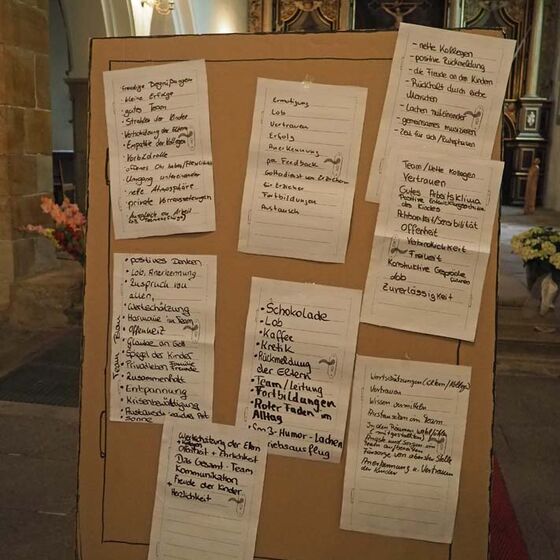 · freudige Begrüßungen
· kleine Erfolge
· gutes Team
· Strahlen der Kinder
· Wertschätzung der Eltern
· Empathie der Kollegen
· Vorbildrolle
Umgang untereinander
· nette Atmosphäre
· private Voraussetzungen
Ermutigung
Lob
Vertrauen
Erfolg
Anerkennung
pos. Feedback
Gottesdienst von Erziehern
für Erzieher
Fortbildungen
Austausch
- nette Kollegen
- positive Rückmeldung
- die Freude an den Kindern
- Rückhalt durch liebe
Menschen
- Lachen miteinander
- gemeinsames musizieren
- Zeit für sich/Ruhephasen
Team/Nette Kollegen
Vertrauen
Gutes Arbeitsklima
Positive Entwicklungsschritte
des Kindes
Achtsamkeit/Sensibilität
Offenheit
Verbindlichkeit
Freiheit
Konstruktive Gespräche
führen
Lob
Zuverlässigkeit
· positives Denken
· Lob, Anerkennung
· Zuspruch von
allen,
· Wertschätzung
· Harmonie im Team
· Offenheit
· Glaube an Gott
· Spiegel der Kinder
· Privatleben Familie
Freunde
· Zusammenhalt
· Entspannung
· Krisenbewältigung
Sonne
Team Blau
· Schokolade
· Lob
· Kaffee
· Kretik
· Rückmeldung
der Eltern
· Team/Leitung
· Fortbildungen
· Roter Faden im
Alltag
3-Humor-Lachen
riebsausflug
Wertschätzungen (Eltern/Kollegen)
Vertrauen
Wissen vermitteln
Austauschen im Team
In den Räumen wohlfühlen
(mitgestaltung)
Team aufbauen
Fürsorge von oberster Stelle
Anerkennung u. Vertrauen
der Kinder
Wertschätzung der Eltern
Offenheit + Ehrlichkeit
Das Gesamt-Team
Kommunikation
Freude der Kinder
Herzlichkeit